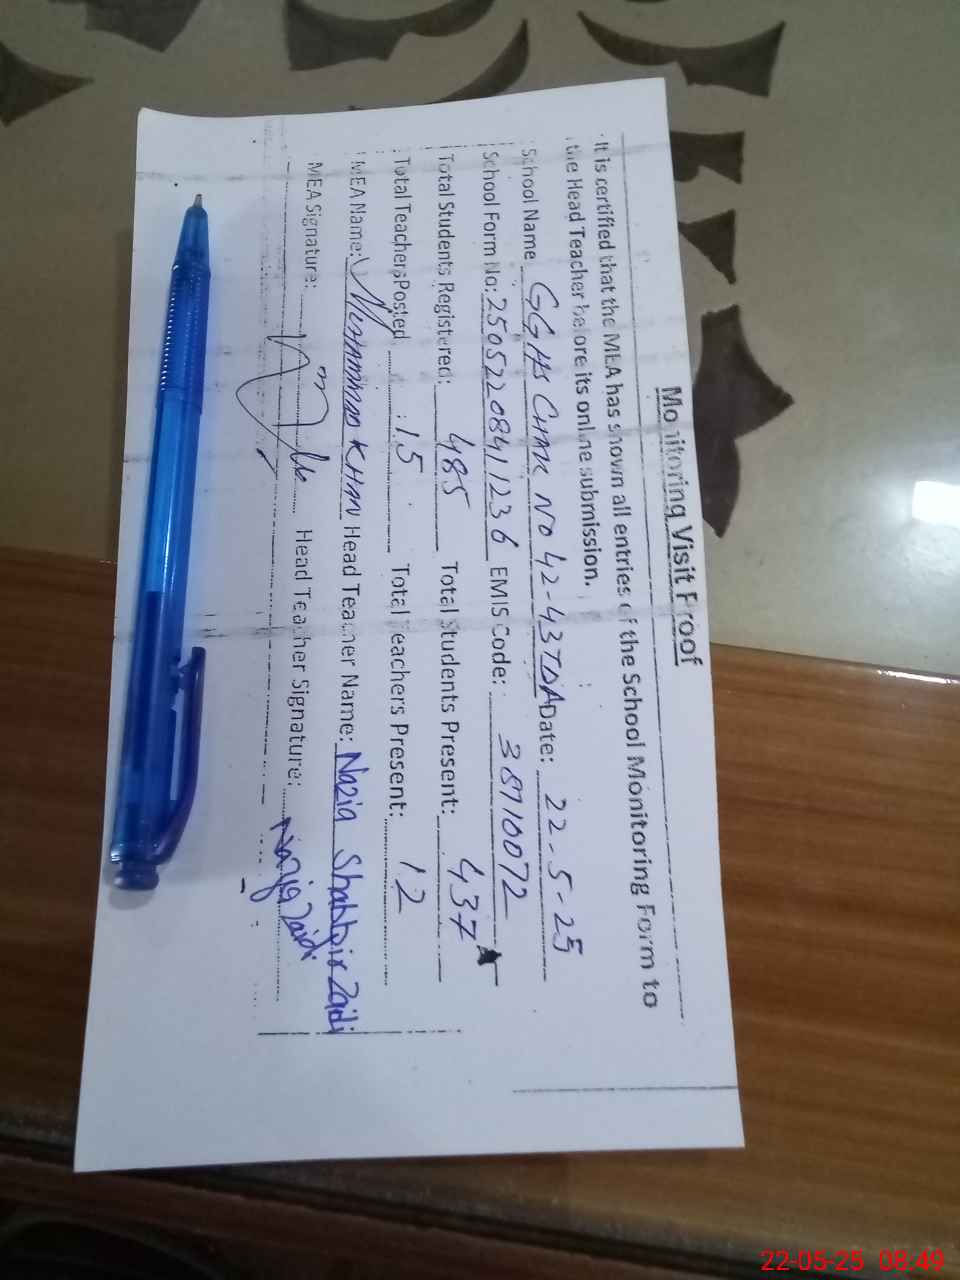 Monitoring Visit Proof
It is certified that the MEA has shown all entries of the School Monitoring Form to
the Head Teacher before its online submission.
School Name GGHS CHAK NO 42-43TDA Date: 22-5-25
School Form No: 25052208411236 EMIS Code: 38710072
Total Students Registered: 485 Total Students Present: 437
Total Teachers Posted 15 Total Teachers Present: 12
MEA Name: Muhammad KHAN Head Teacher Name: Nazia Shabbir Zaidi
MEA Signature: Head Teacher Signature: Nazia Zaidi
22-05-25 08:49